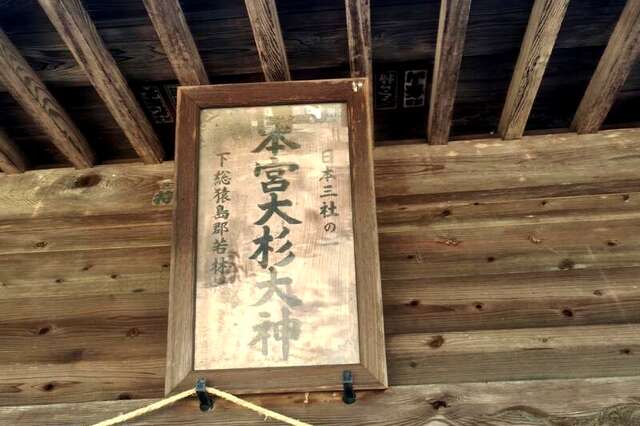 日本三社の一
本宮大杉大神
下総猿島郡若林